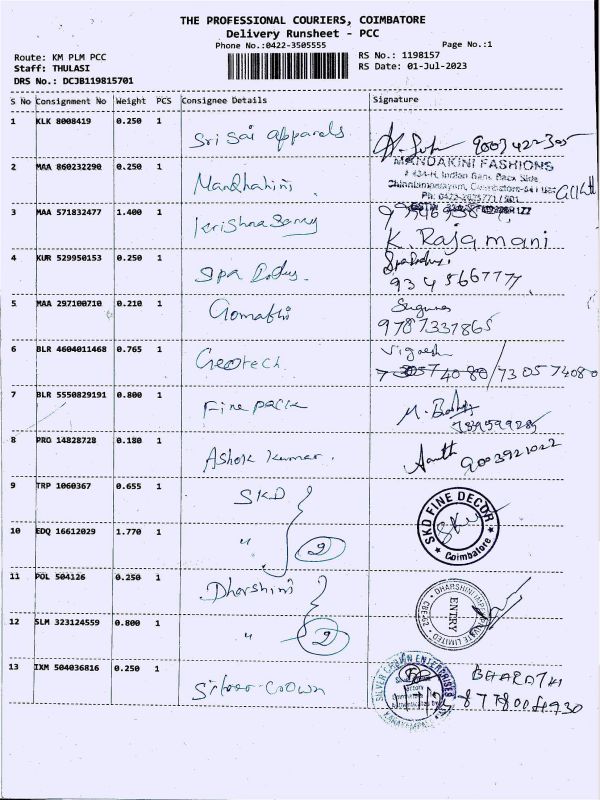 THE PROFESSIONAL COURIERS, COIMBATORE
Delivery Runsheet - PCC
Phone No.:0422-3505555
Page No.:1
Route: KM PLM PCC
RS No.: 1198157
Staff: THULASI
RS Date: 01-Jul-2023
DRS No.: DCJB119815701
S No Consignment No Weight PCS Consignee Details Signature
1 KLK 8008419 0.250 1 Sri Sai apparels
2 MAA 860232290 0.250 1
MANDAKINI FASHIONS
3 MAA 571832477 1.400 1
K. Rajamani
4 KUR 529950153 0.250 1 Spa
9345667777
5 MAA 297100710 0.210 1 Gomathi
9787337865
6 BLR 4604011468 0.765 1 Geotech Vignesh
/730574080
7 BLR 5550829191 0.800 1 Fine pack
8 PRO 14828728 0.180 1 Ashok kumar.
9003921022
9 TRP 1060367 0.655 1 SKD
SKD FINE DECOR
Coimbatore
10 EDQ 16612029 1.770 1 " 2
11 POL 504126 0.250 1 Dharshini
ENTRY
12 SLM 323124559 0.800 1 " 2
13 IXM 504036816 0.250 1 Silver Crown
SILVER CROWN ENTERPRISES